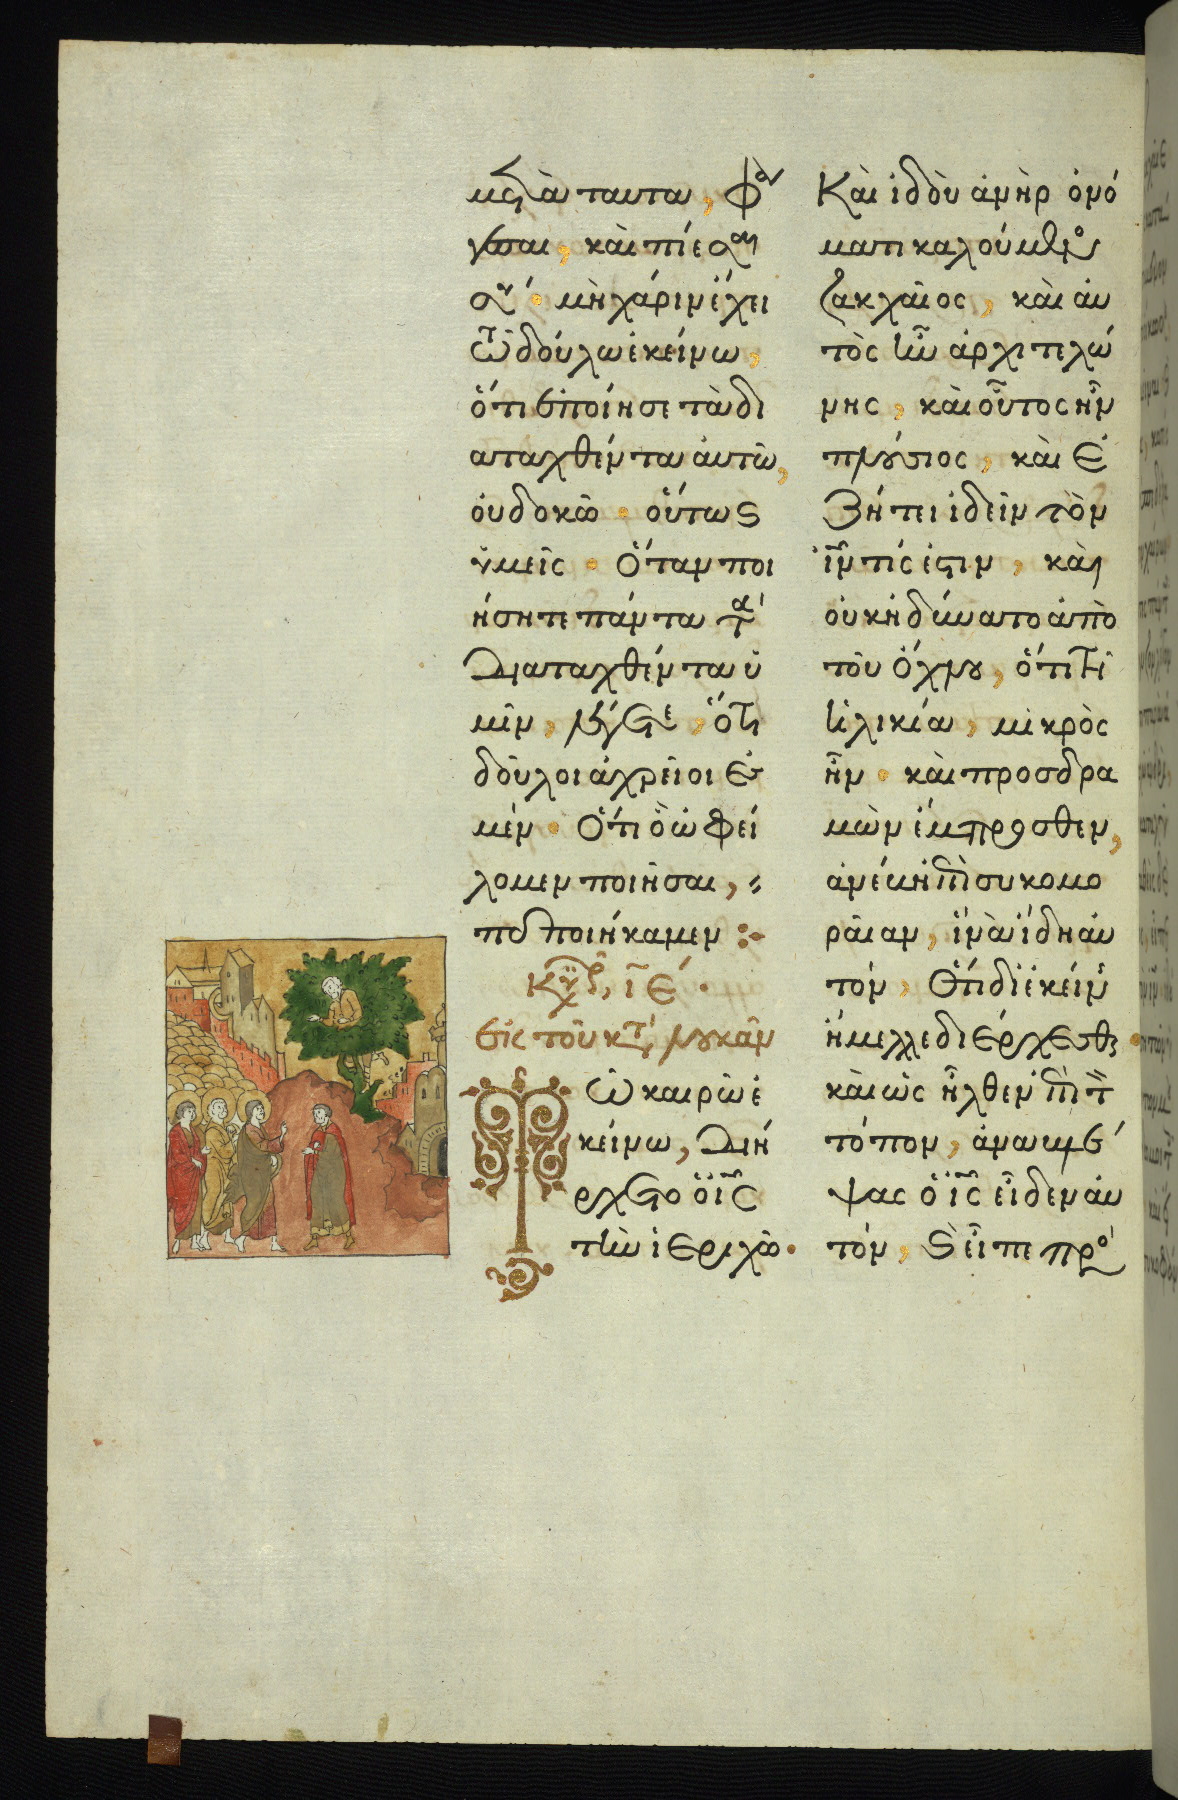 μετὰ ταῦτα, φά
γεσαι, καὶ πίεσαι
σύ· μὴ χάριν ἔχει
τῶ δούλω ἐκείνω,
ὅτι ἐποίησε τὰ δι
αταχθέντα ἀυτῶ,
οὐ δοκῶ· οὕτως
ὑμεῖς· ὅταν ποι
ήσητε πάντα τὰ
διαταχθέντα ὑ
μῖν, λέγετε, ὅτι
δοῦλοι ἀχρεῖοι ἐσ
μέν· ὅτι ὃ ὠφεί
λομεν ποιῆσαι,
πεποιήκαμεν :
Κυρ, ιε.
ἐκ τοῦ κτ λουκὰν
Τῶ καιρῶ ἐ
κείνω, διή
ρχετο ὁ ἰς
τὴν ἱεριχῶ·
Καὶ ἰδοὺ ἀνὴρ ὀνό
ματι καλούμενος
ζακχαῖος, καὶ ἀυ
τὸς ἦν ἀρχιτελώ
νης, καὶ οὗτος ἦν
πλούσιος, καὶ ἐ
ζήτει ἰδεῖν τὸν
ἰν τίς ἐστιν, καὶ
οὐκ ἠδύνατο ἀπὸ
τοῦ ὄχλου, ὅτι τῆ
ἡλικία, μικρὸς
ἦν· καὶ προσδρα
μὼν ἔμπροσθεν,
ἀνέβη ἐπὶ συκομο
ραῖαν, ἵνα ἴδη ἀυ
τόν, ὅτι δι ἐκείνης
ἤμελλε διέρχεσθαι·
καὶ ὡς ἦλθεν ἐπὶ τὸν
τόπον, ἀναβλέ
ψας ὁ ἰς εἶδεν ἀυ
τόν, καὶ εἶπε πρὸς